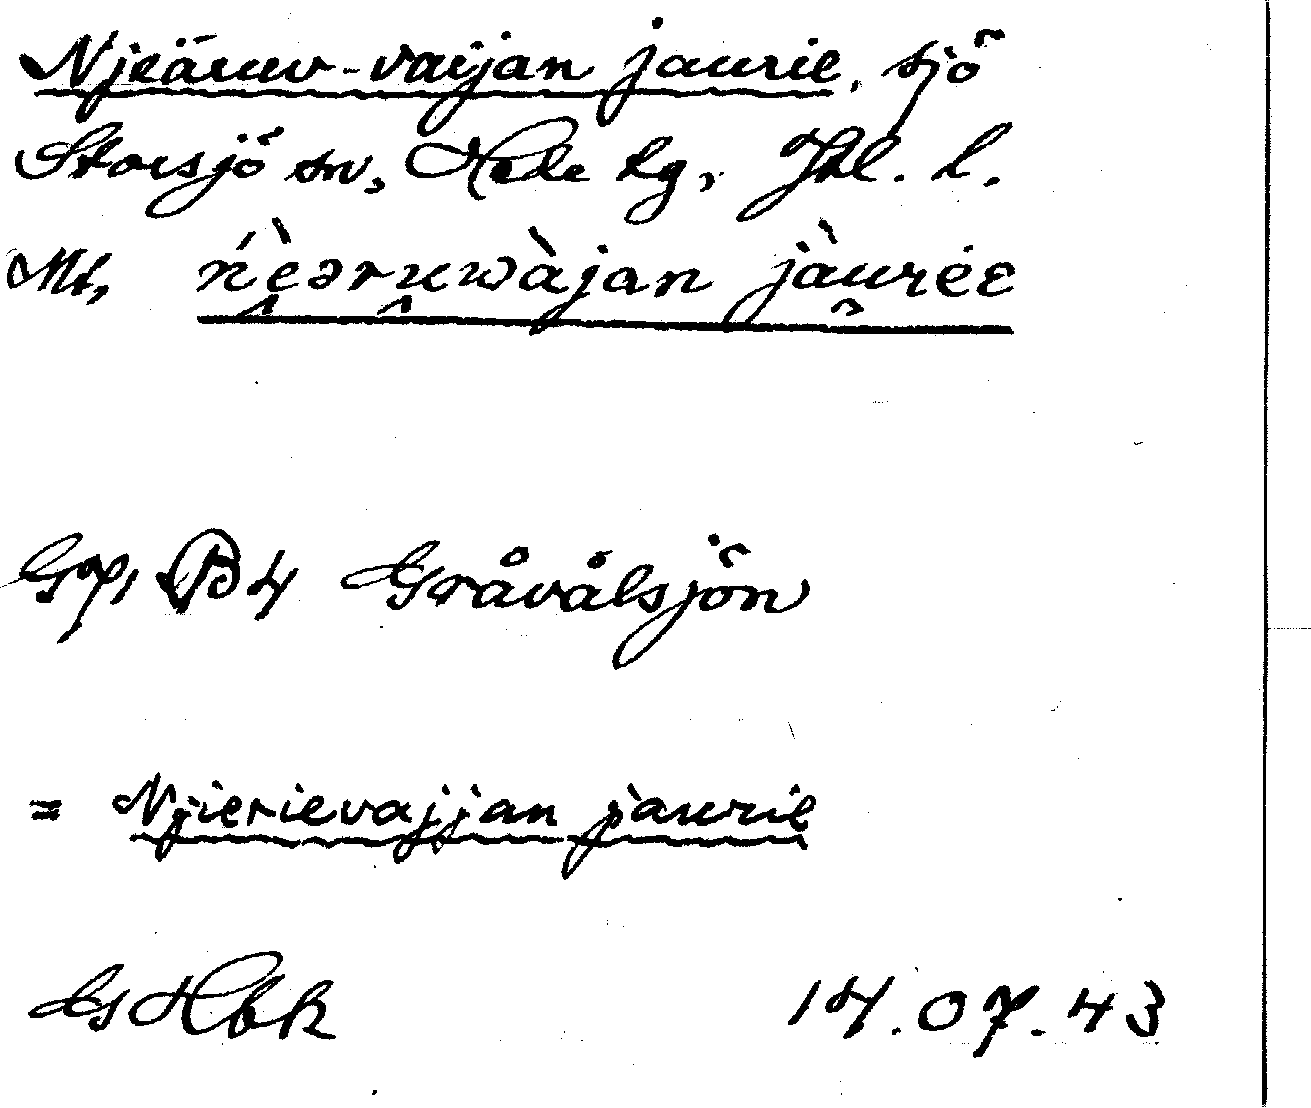 Njeäruv-vaijan jaurie, sjö
Storsjö sn, Hede tg, Jtl. l.
Mt, ńèəruwàjan jàurėe
Gp, B4 Gråvålsjön
= Njierievajjan jaurie
GHbk 14.07.43